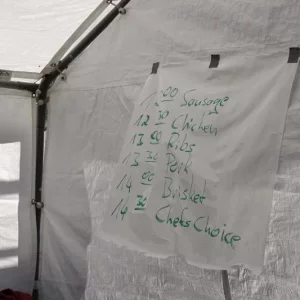 12 00 Sausage
12 30 Chicken
13 00 Ribs
13 30 Pork
14 00 Brisket
14 30 Chefs Choice